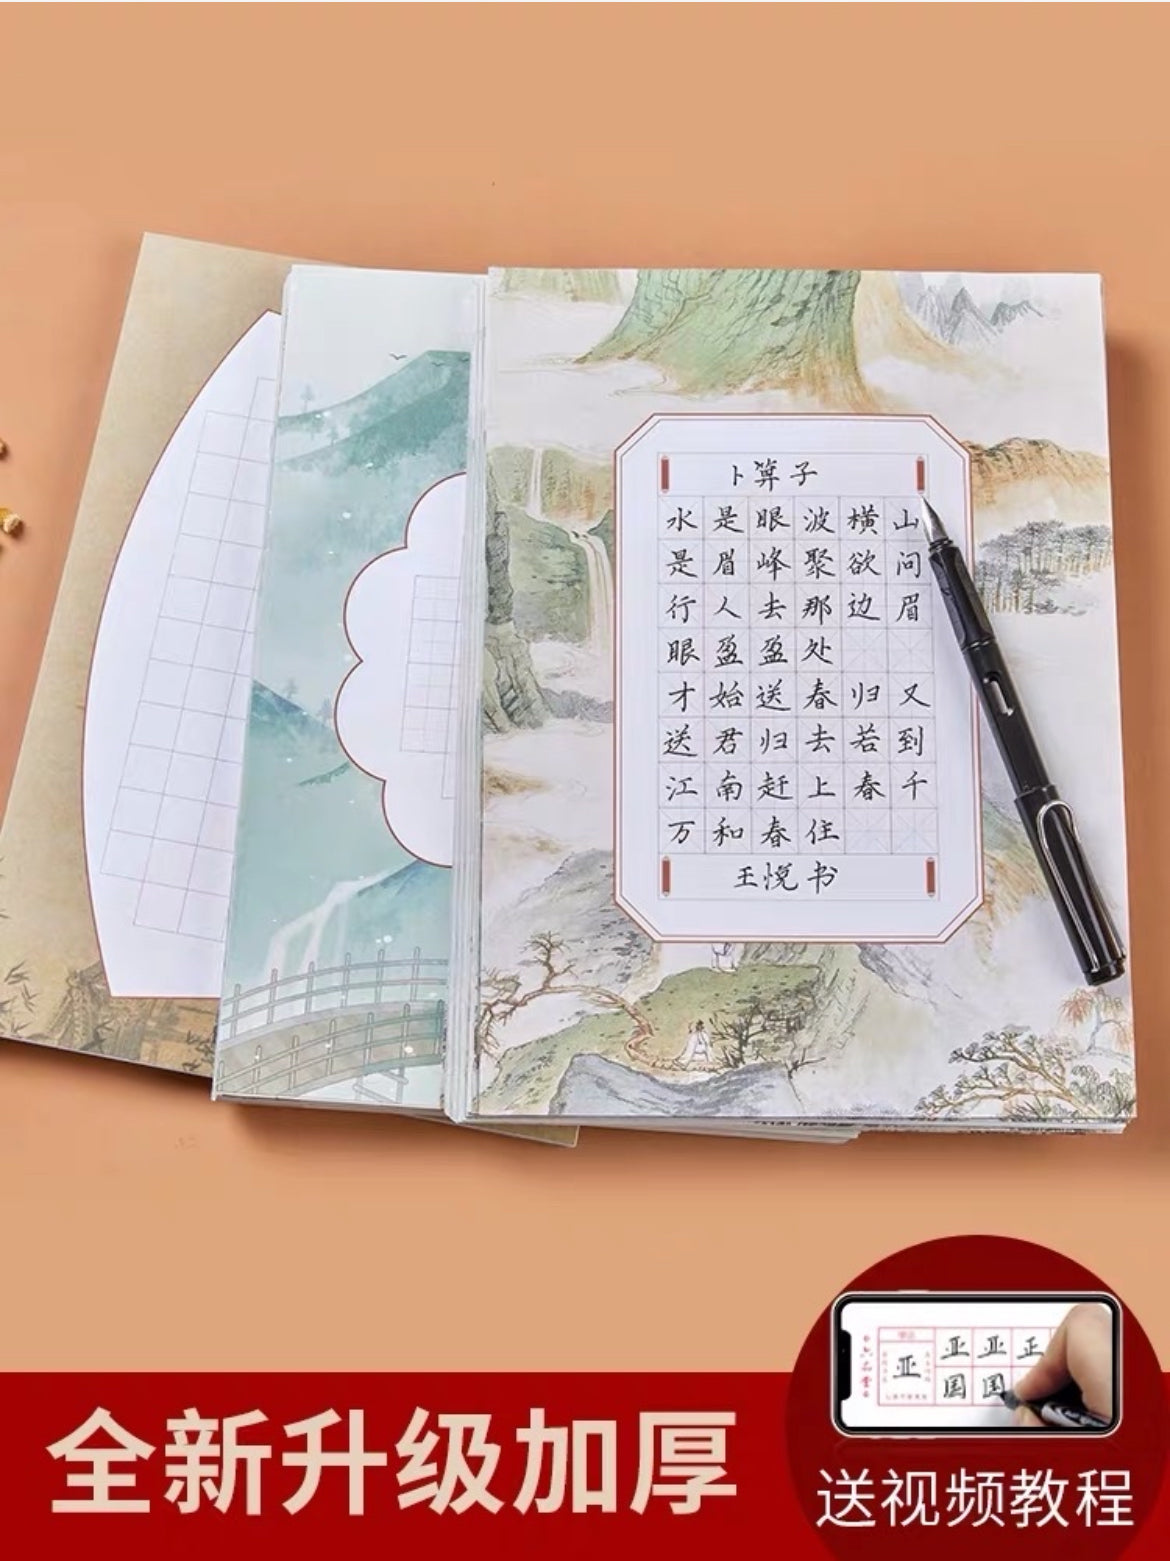 卜算子
水是眼波横山
是眉峰聚欲问
行人去那边眉
眼盈盈处
才始送春归又
送君归去若到
江南赶上春千
万和春住
王悦书
亚亚正
亚
国国
全新升级加厚
送视频教程